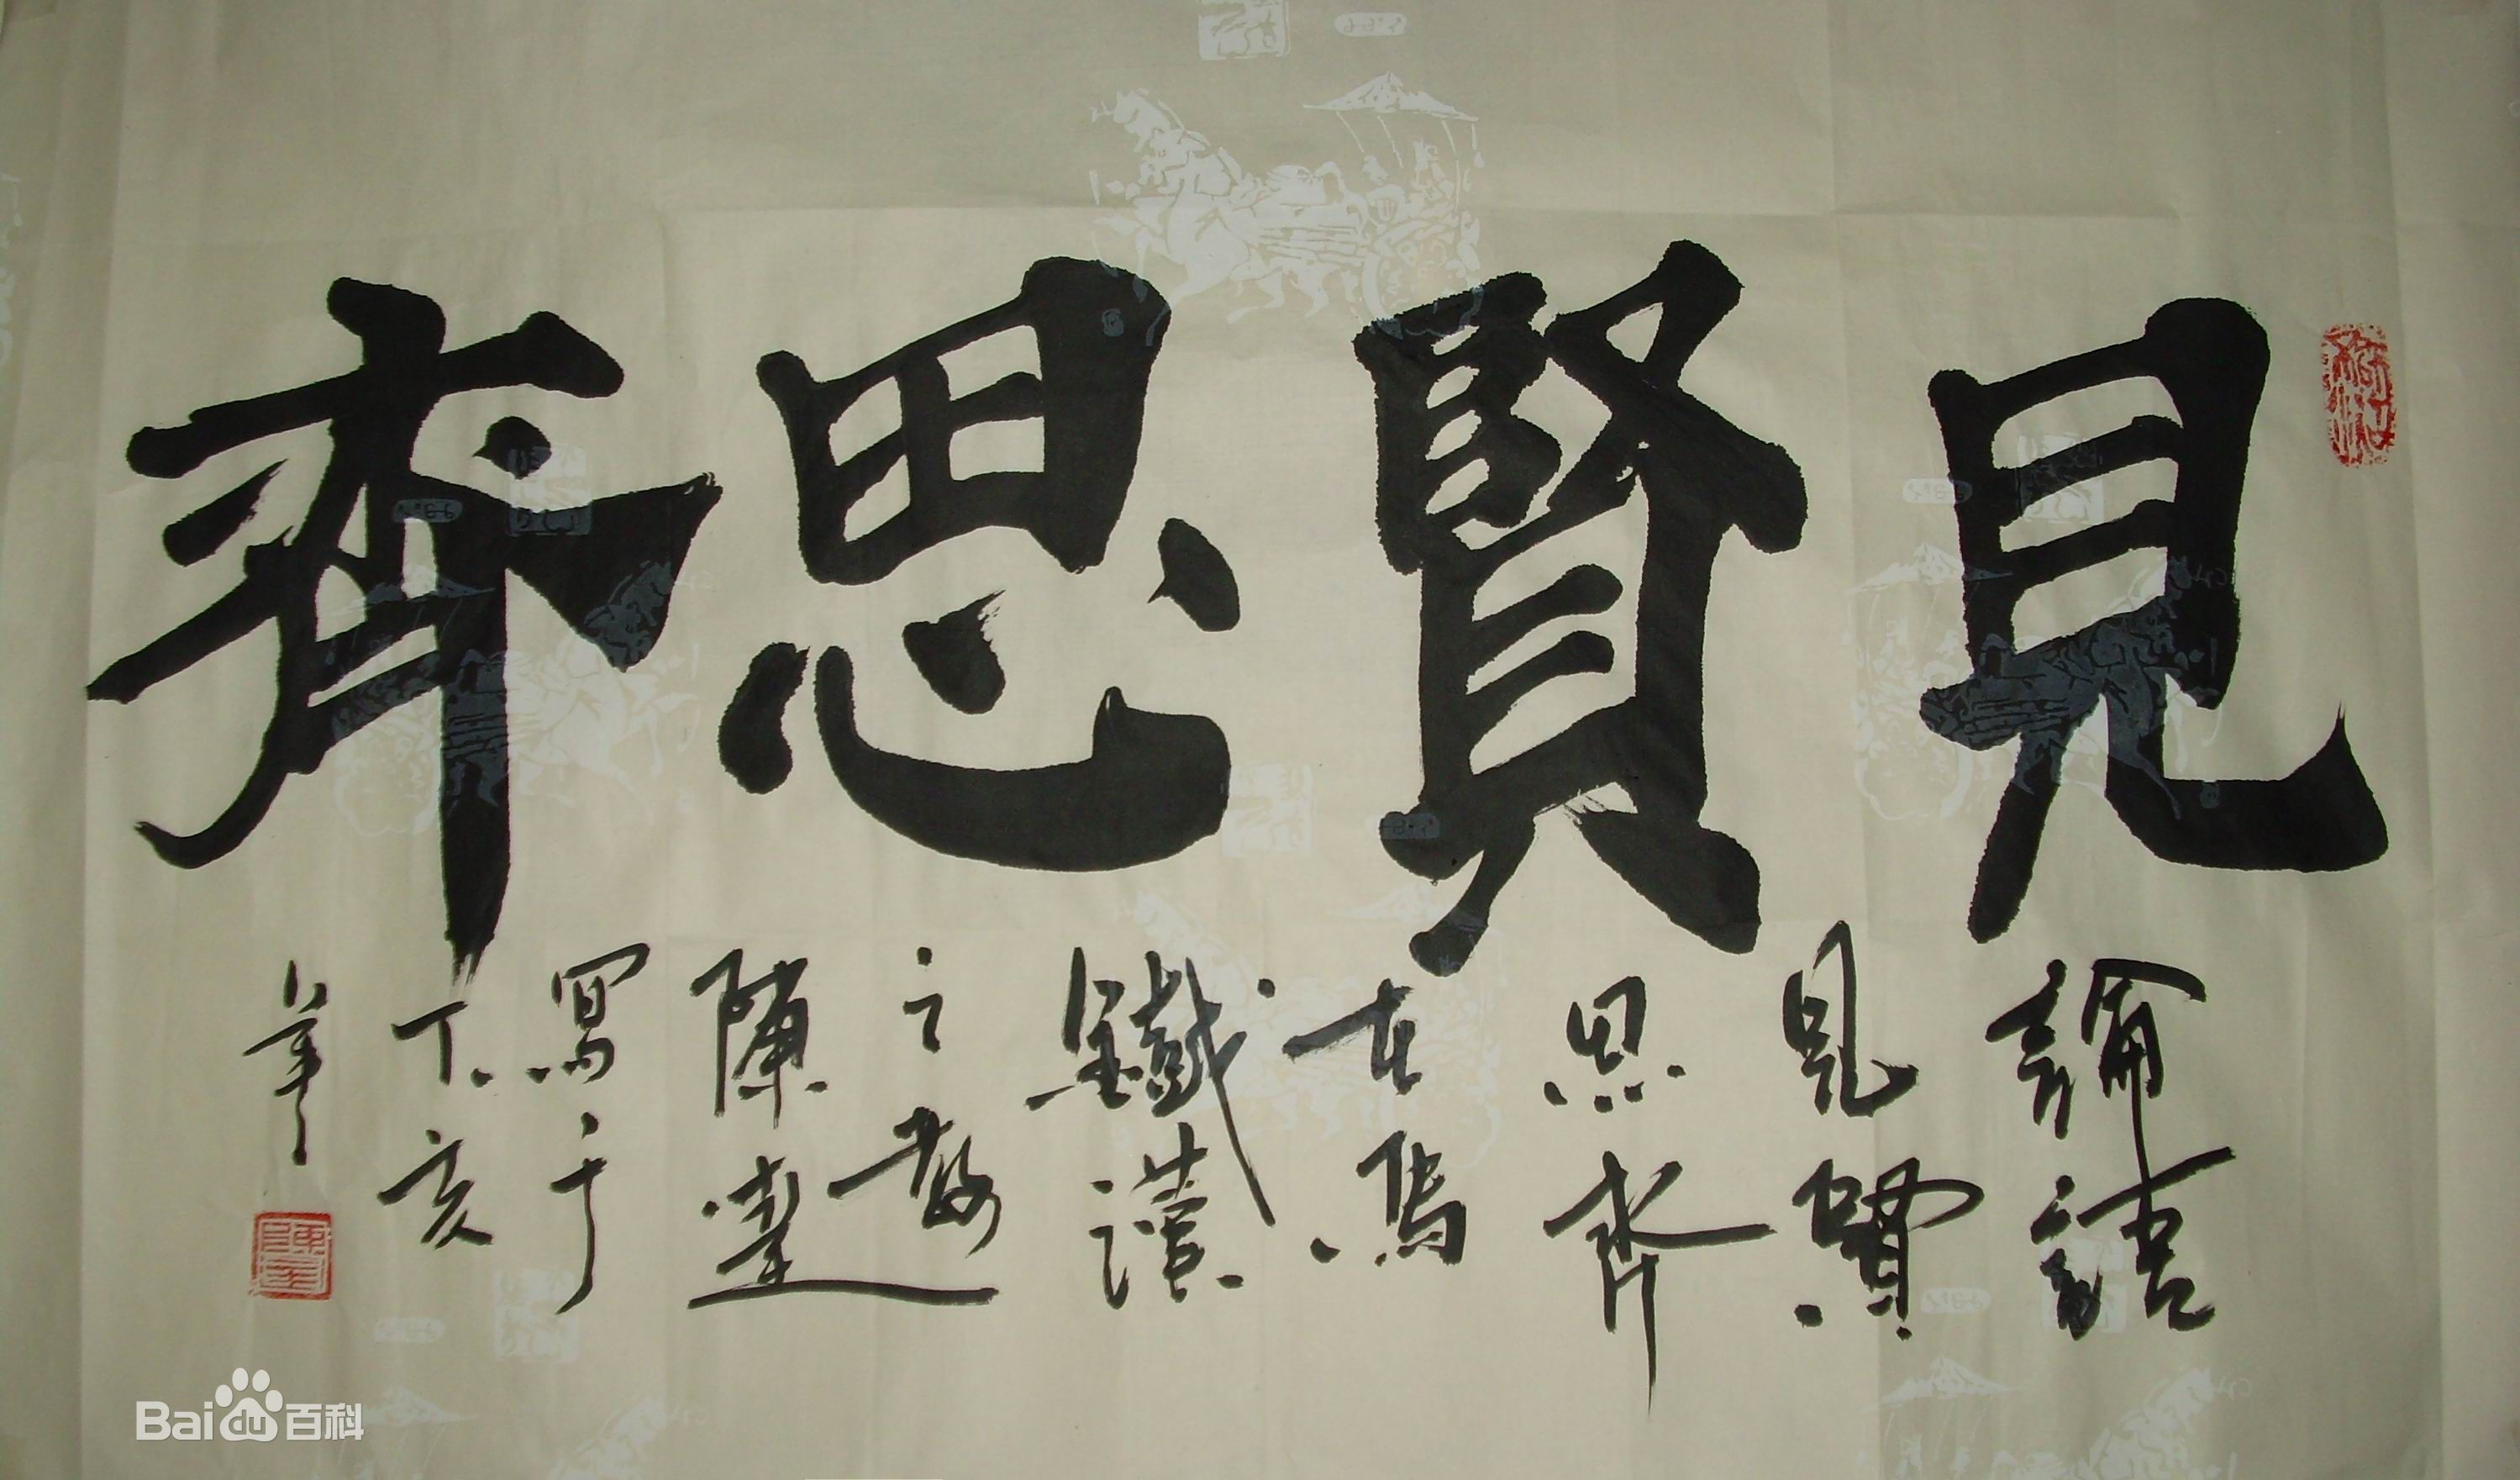 見賢思齊
論語
見賢
思齊
鐵漢
之
陳達
寫于
丁亥
年
Bai du 百科